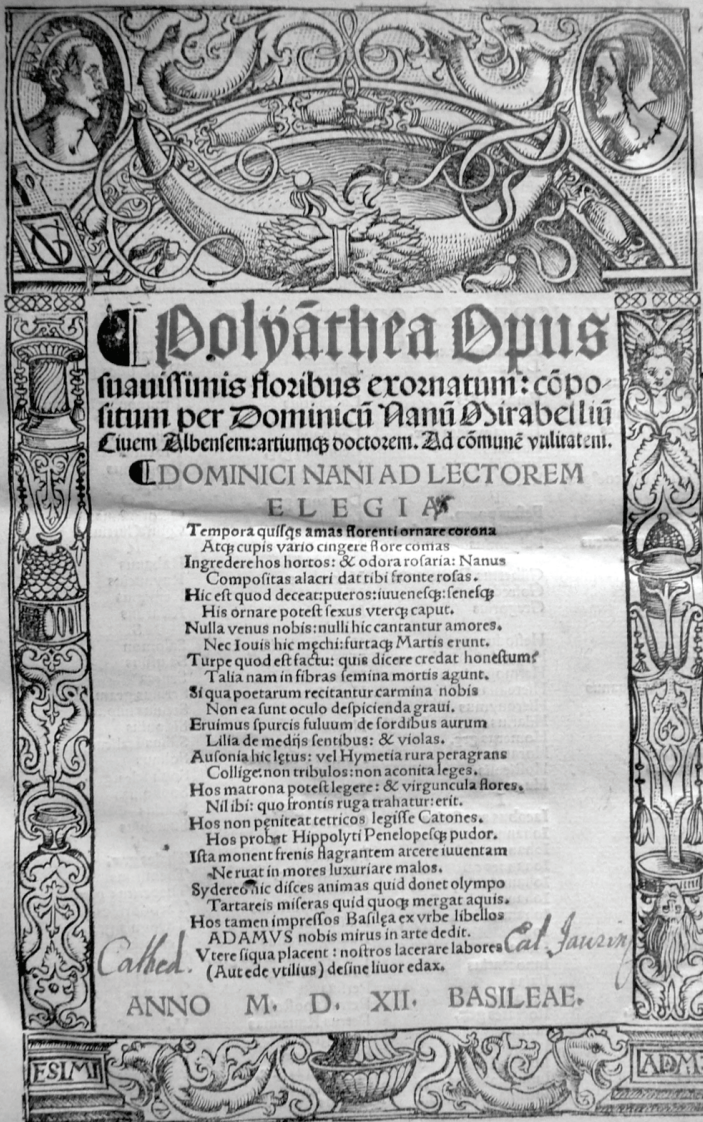 Polyãthea Opus
suauissimis floribus exornatum: cõpo-
situm per Dominicũ Nanũ Mirabelliũ
Ciuem Albensem: artiumqꝫ doctorem. Ad cõmunẽ vtilitatem.
DOMINICI NANI AD LECTOREM
ELEGIA
Tempora quisq̃s amas florenti ornare corona
Atqꝫ cupis vario cingere flore comas
Ingredere hos hortos: & odora rosaria: Nanus
Compositas alacri dat tibi fronte rosas.
Hic est quod deceat: pueros: iuuenesqꝫ: senesqꝫ
His ornare potest sexus vterqꝫ caput.
Nulla venus nobis: nulli hic cantantur amores.
Nec Iouis hic męchi: furtaqꝫ Martis erunt.
Turpe quod est factu: quis dicere credat honestum?
Talia nam in fibras semina mortis agunt.
Si qua poetarum recitantur carmina nobis
Non ea sunt oculo despicienda graui.
Eruimus spurcis fuluum de sordibus aurum
Lilia de medijs sentibus: & violas.
Ausonia hic lętus: vel Hymetia rura peragrans
Collige: non tribulos: non aconita leges.
Hos matrona potest legere: & virguncula flores.
Nil ibi: quo frontis ruga trahatur: erit.
Hos non pęniteat tetricos legisse Catones.
Hos probet Hippolyti Penelopesqꝫ pudor.
Ista monent frenis flagrantem arcere iuuentam
Ne ruat in mores luxuriare malos.
Sydereo hic disces animas quid donet olympo
Tartareis miseras quid quoqꝫ mergat aquis.
Hos tamen impressos Basilęa ex vrbe libellos
ADAMVS nobis mirus in arte dedit.
Cathed. Vtere siqua placent: nostros lacerare labores Cat. Jaurin
(Aut ede vtilius) desine liuor edax.
ANNO M. D. XII. BASILEAE.
ESIMI ADM